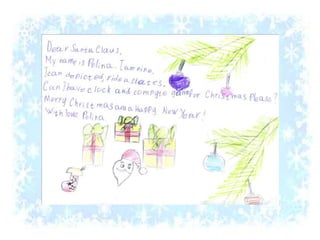 Dear Santa Claus,
My name is Polina. I am nine.
I can depicted, ride a skates.
Can I have clock and computer game for Christmas Please?
Merry Christmas and a Happy New Year!
With love Polina